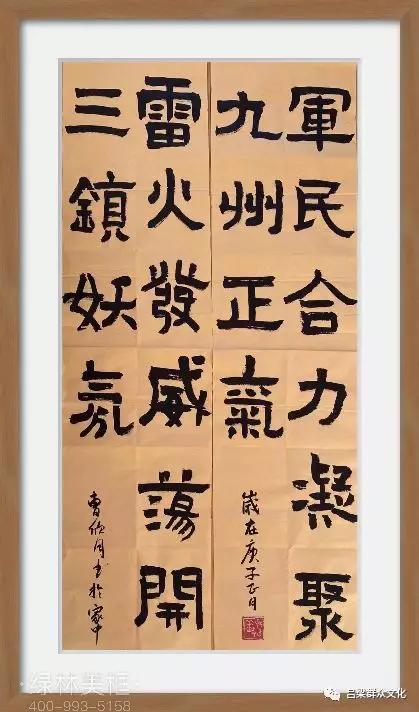 軍民合力凝聚
九州正氣
歲在庚子正月
雷火發威蕩開
三鎮妖氛
曹欣月书於家中
绿林美框
400-993-5158
吕梁群众文化